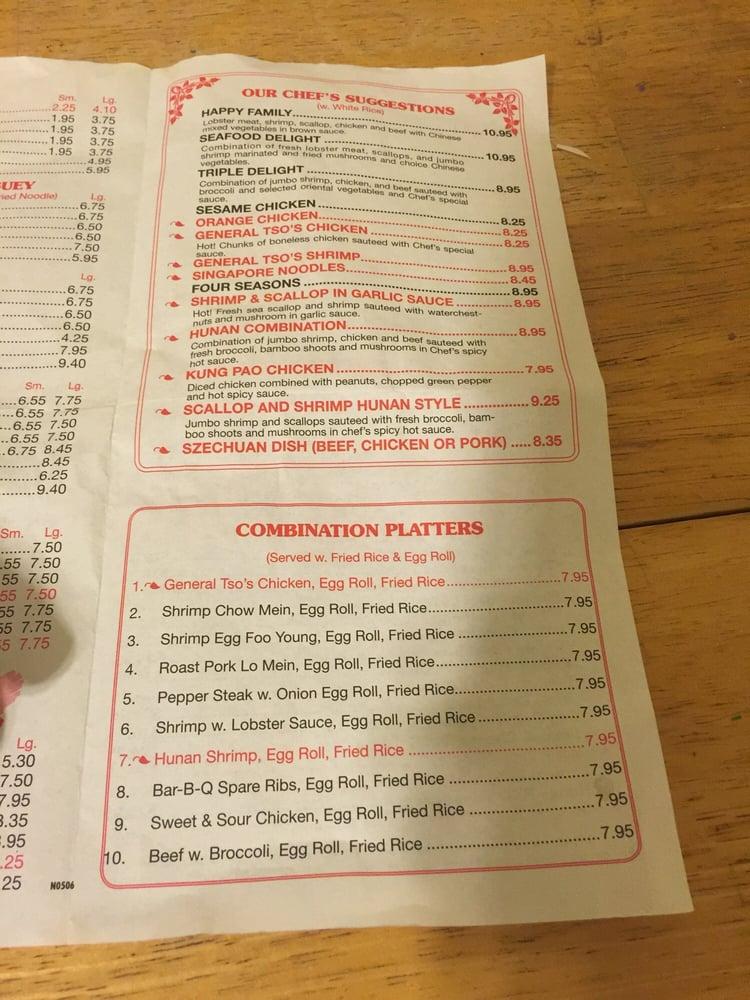 Sm. Lg.
2.25 4.10
1.95 3.75
1.95 3.75
1.95 3.75
1.95 3.75
4.95
5.95
UEY
ried Noodle) Lg.
6.75
6.75
6.50
6.50
7.50
5.95
Lg.
6.75
6.75
6.50
6.50
4.25
7.95
9.40
Sm. Lg.
6.55 7.75
6.55 7.75
6.55 7.50
6.55 7.50
6.75 8.45
8.45
6.25
9.40
Sm. Lg.
7.50
.55 7.50
55 7.50
55 7.50
55 7.75
55 7.75
5 7.75
Lg.
5.30
7.50
7.95
3.35
.95
.25
25
N0506
OUR CHEF'S SUGGESTIONS
(w. White Rice)
HAPPY FAMILY 10.95
Lobster meat, shrimp, scallop, chicken and beef with Chinese
mixed vegetables in brown sauce.
SEAFOOD DELIGHT 10.95
Combination of fresh lobster meat, scallops, and jumbo
shrimp marinated and fried mushrooms and choice Chinese
vegetables.
TRIPLE DELIGHT 8.95
Combination of jumbo shrimp, chicken, and beef sauteed with
broccoli and selected oriental vegetables and Chef's special
sauce.
SESAME CHICKEN 8.25
ORANGE CHICKEN 8.25
GENERAL TSO'S CHICKEN 8.25
Hot! Chunks of boneless chicken sauteed with Chef's special
sauce.
GENERAL TSO'S SHRIMP 8.95
SINGAPORE NOODLES 8.45
FOUR SEASONS 8.95
SHRIMP & SCALLOP IN GARLIC SAUCE 8.95
Hot! Fresh sea scallop and shrimp sauteed with waterchest-
nuts and mushroom in garlic sauce.
HUNAN COMBINATION 8.95
Combination of jumbo shrimp, chicken and beef sauteed with
fresh broccoli, bamboo shoots and mushrooms in Chef's spicy
hot sauce.
KUNG PAO CHICKEN 7.95
Diced chicken combined with peanuts, chopped green pepper
and hot spicy sauce.
SCALLOP AND SHRIMP HUNAN STYLE 9.25
Jumbo shrimp and scallops sauteed with fresh broccoli, bam-
boo shoots and mushrooms in chef's spicy hot sauce.
SZECHUAN DISH (BEEF, CHICKEN OR PORK) 8.35
COMBINATION PLATTERS
(Served w. Fried Rice & Egg Roll)
1. General Tso's Chicken, Egg Roll, Fried Rice 7.95
2. Shrimp Chow Mein, Egg Roll, Fried Rice 7.95
3. Shrimp Egg Foo Young, Egg Roll, Fried Rice 7.95
4. Roast Pork Lo Mein, Egg Roll, Fried Rice 7.95
5. Pepper Steak w. Onion Egg Roll, Fried Rice 7.95
6. Shrimp w. Lobster Sauce, Egg Roll, Fried Rice 7.95
7. Hunan Shrimp, Egg Roll, Fried Rice 7.95
8. Bar-B-Q Spare Ribs, Egg Roll, Fried Rice 7.95
9. Sweet & Sour Chicken, Egg Roll, Fried Rice 7.95
10. Beef w. Broccoli, Egg Roll, Fried Rice 7.95